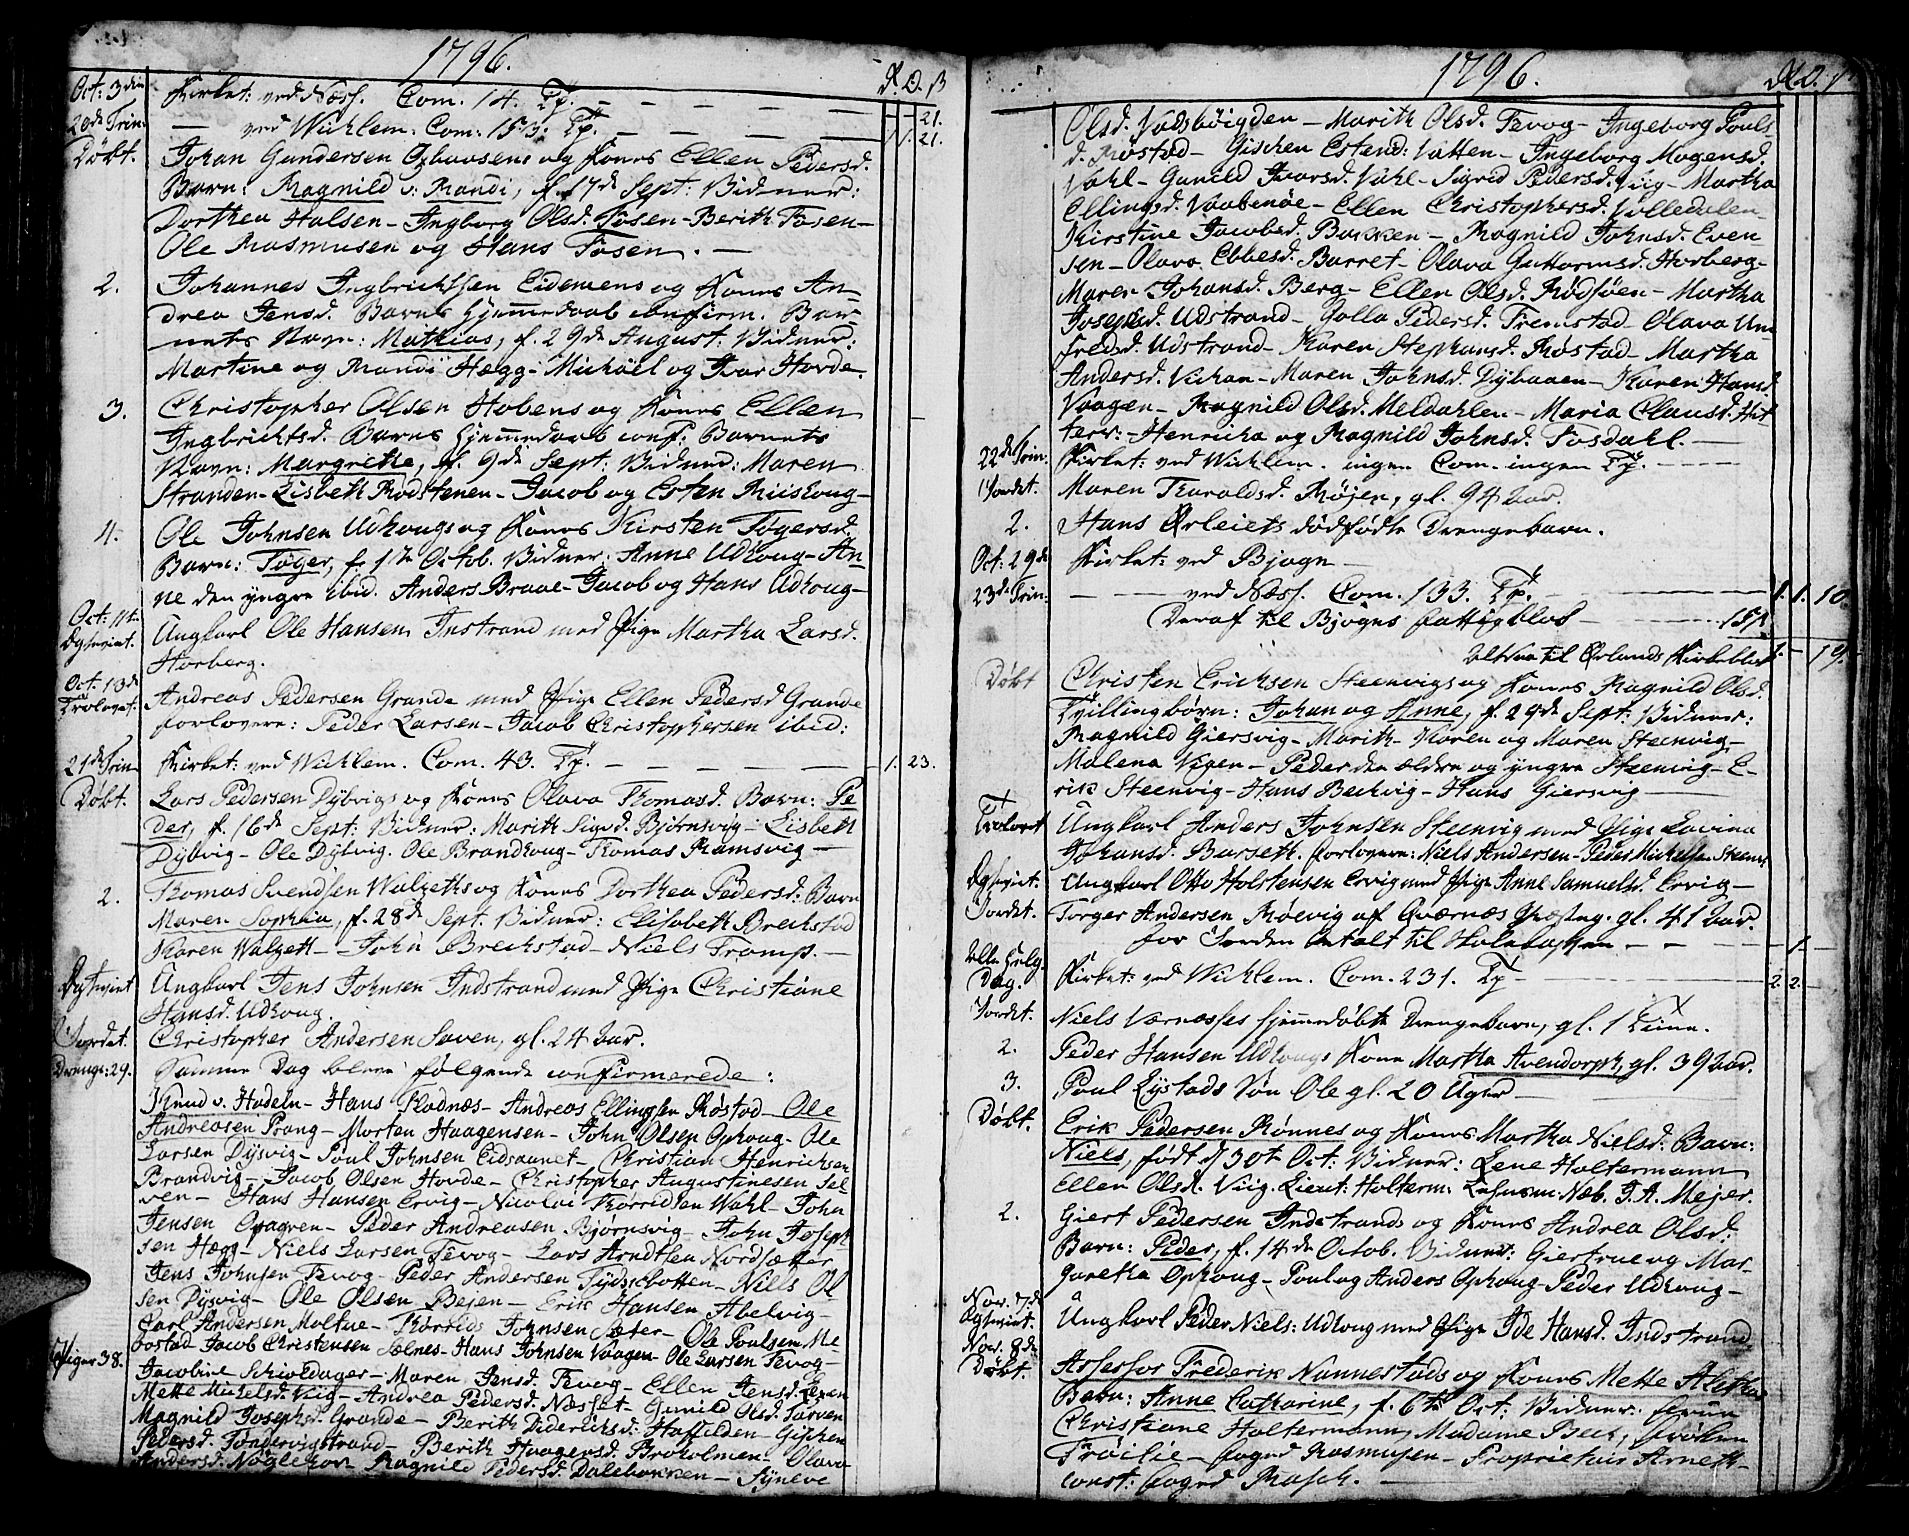 1796.
R. O. ß
Oct: 3die Kirket: ved Næss. Com. 14. Tj.
20de Trin: ved Wicklem. Com: 153. Tj. 1. 1. 21.
Døbt. Johan Gundersen og Kones Ellen Pedersd.
Barn: Magnild v: Randi, f. 17de Sept: Vidner:
Dorthea Halsen - Ingborg Olsd. Fosen - Berith Fosen -
Ole Rasmusen og Hans Fosen. -
2. Johannes Ingbrichtsen Eidemens og Kones An-
drea Jensd. Barns hjemmedaab confirm. Bar-
nets Navn: Mathias, f. 29de August. Vidner:
Martine og Randi Hægg - Michäel og Ivar Hovde.
3. Christopher Olsen Hobens og Kones Ellen
Ingbrichtsd. Barns hjemmedaab conf: Barnets
Navn: Margrethe, f. 9de Sept: Vidner: Maren
Stranden - Lisbeth Rødstenen - Jacob og Esten Riishoug -
4. Ole Johnsen Udhougs og Kones Kirsten Tøgersd.
Barn: Tøger, f. 1te Octob. Vidner: Anne Udhoug - An-
ne den yngre ibid. Anders Braae - Jacob og Hans Udhoug -
Oct: 11te
Ungkarl Ole Hansen Instrand med Pige Martha Larsd.
Horberg.
Oct. 13de
Trolovet: Andreas Pedersen Grande med Pige Ellen Pedersd Grande
forlovere: Peder Larsen - Jacob Christophersen ibid:
21de Trin Kirket: ved Wicklem. Com. 43. Tj. 1. 23.
Døbt. Lars Pedersen Dybvigs og Kones Olava Thomasd. Barn: Pe-
der, f. 16de Sept: Vidner: Marith Sigvd. Bjørnsvig - Lisbeth
Dybvig - Ole Dybvig. Ole Brandhoug - Thomas Ramsvig -
2. Thomas Svendsen Walseths og Kones Dorthea Pedersd: Barn
Maren Sophia, f. 28de Sept. Vidner: Elisabeth Brechstad
Karen Walsett - John Brechstad - Niels Tromp. -
Ungkarl Jens Johnsen Indstrand med Pige Christiane
Hansd. Udhoug.
Jordet. Christopher Andersen Soven, gl. 24 Aar.
Drenge: 29. Samme Dag bleve følgende confirmerede:
Knud v. Hadeln - Hans Fladnæs - Andreas Ellingsen Røstad - Ole
Andreasen Prang - Morten Haagensen - John Olsen Ophoug - Ole
Larsen Dysvig - Poul Johnsen Eidsaunet - Christian Henrichsen
Brandvig - Jacob Olsen Hovde - Christopher Augustinesen Sel-
ven - Hans Hansen Ervig - Nicolai Thorridsen Wahl - John
Jensen Opagren - Peder Andreasen Bjørnsvig - John Joseph
sen Hægg - Niels Larsen Fevog - Lars Arndtsen Nordsætter
Jens Johnsen Fevog - Peder Andersen Tydsbotten - Niels Ol
sen Dysvig - Ole Olsen Bejen - Erik Hansen Abelvig -
Carl Andersen Moltue - Johnsen Sæter - Ole Poulsen Me
bostad Jacob Christensen Selnes - Hans Johnsen Vaagen - Ole Larsen Fevog -
Piger 38. Jacobine Schioldager - Maren Jensd. Fevog - Ellen Jensd.
Mette Michelsd. Viig - Andrea Pedersd. Næsset - Gunild Olsd. Tarven
Magnild Josephsd. Grande - Berith Diderichsd: Haffelden - Gischen
Pedersd. Tøndervigstrand - Berith Haagensd. Broholmen - Olava
Andersd. Magnild Pedersd. Dalebakken - Synneve
1796.
R. O. ß
Olsd. Vadsbøigden - Marith Olsd. Fevog - Ingeborg Pouls-
d. Røstad - Gischen Estend: Vatten - Ingeborg Mogensd.
Vahl - Gunild Ivarsd. Vahl - Sigrid Pedersd. Viig - Martha
Ellingsd. Vaabenøe - Ellen Christophersd. Volledalen
Kirstine Jacobsd. Bakken - Magnild Johnsd. Even
sen - Olava Ebbesd. Barret - Olava Guttormsd. Horberg -
Maren Johansd. Berg - Ellen Olsd. Rødsøen - Martha
Josephsd. Udstrand - Golla Pedersd. Fremstad - Olava Um
fredsd. Udstrand - Karen Stephansd. Røstad - Martha
Andersd. Vichan - Maren Johnsd. Dybaaen - Karen Hansd
Vaagen - Magnild Olsd. Meldahlen - Maria Clausd. Hit
terø: - Henricha og Magnild Johnsd. Fosdahl. -
22de Trin: Kirket: ved Wicklem. ingen Com. ingen Tj. -
Jordet. Maren Tharaldsd. Røjen, gl. 94 Aar.
2. Hans Ørleiets dødfødte Drengebarn.
Oct: 29de Kirket: ved Bjogn -
23de Trin: ved Næss. Com. 133. Tj. 1. 1. 10.
Deraf til Bjogns fattigblok - 15ß
til Ørlands Kirkeblok 1. - 19.
Døbt Christen Erichsen Steenvigs og Kones Magnild Olsd.
Tvillingbørn: Johan og Anne, f. 29de Sept: Vidner:
Magnild Giersvig - Marith - Karen og Maren Steenvig -
Malena Vigen - Peder den ældre og yngre Steenvig - E-
rik Steenvig - Hans Beckvig - Hans Giersvig -
Trolovet Ungkarl Anders Johnsen Steenvig med Pige Lavina
Johansd. Barseth. forlovere: Niels Andersen - Peder Michelsen Steenv.
Ungkarl Otto Holstensen Ervig med Pige Anne Samuelsd. Ervig -
Jordet. Torger Andersen Røevig aff Qværnæs Præsteg. gl. 41 Aar.
for Jorden betalt til - 1. -
Alle Helg.
Dag. Kirket: ved Wicklem. Com. 231. Tj - 2. 2. -
Jordet. Niels Værnæsses hjemmedøbte Drengebarn, gl. 1 Time.
2. Peder Hansen Udhougs Kone Martha Avendorph, gl. 39 Aar.
3. Poul Eystads Søn Ole gl. 20 Uger -
Døbt. Erik Pedersen Rønnes og Kones Martha Nielsd: Barn:
Niels, født d 30te Oct: Vidner: Lene Holtermann
Ellen Olsd. Viig. Lieut: Holterm: Næb. J. A. Mejer.
2. Giert Pedersen Indstrands og Kones Andrea Olsd:
Barn: Peder, f. 14de Octob. Vidner: Giertrue og Mar-
garetha Ophoug - Poul og Anders Ophoug - Peder Udhoug -
Nov. 7de
Ungkarl Peder Niels: Udhoug med Pige Ide Hansd. Indstrand
Nov. 8de
Døbt. Assessor Frederik Nannestads og Kones Mette Aletha
Barn: Anne Catharine, f. 6te Oct: Vidner: Frue
Christiane Holtermann, Madame Beck, frøken
Frøilie - foged Rasmusen - Proprietair Arnett -
const: foged Rasch. -